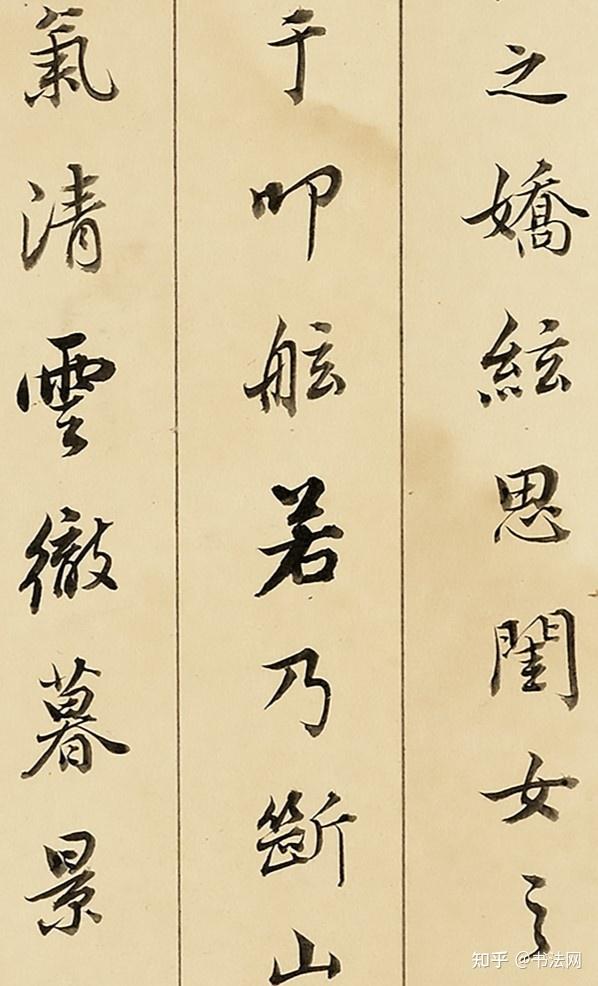 之嬌絃思閨女之
于叩舷若乃斷山
氣清雲徹暮景
知乎 @书法网